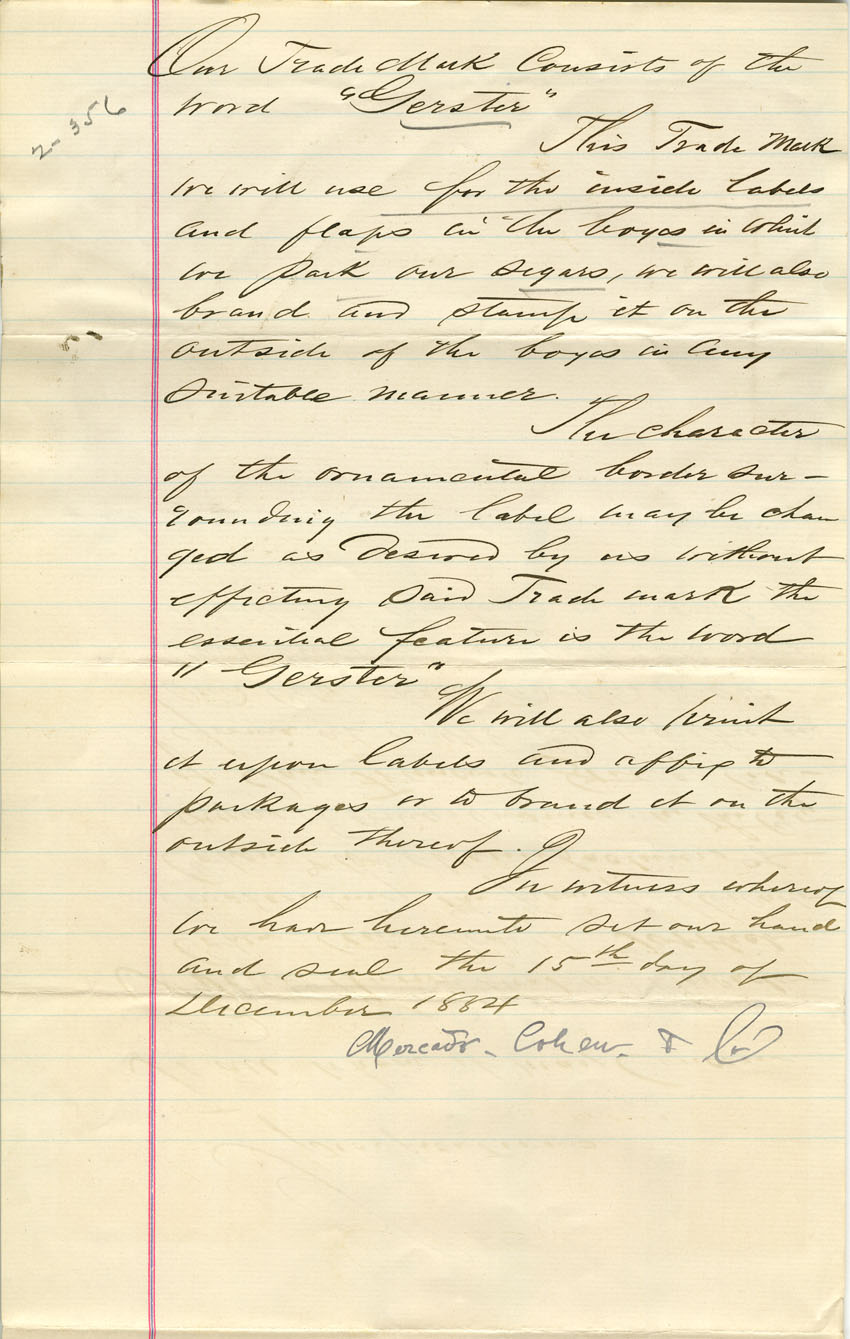 Our Trade Mark Consists of the
word "Gerster"
2-356
This Trade Mark
we will use for the inside labels
and flaps in the boxes in which
we pack our segars, we will also
brand and stamp it on the
outside of the boxes in any
suitable manner.
The character
of the ornamental border sur-
rounding the label may be chan
ged as desired by us without
effecting said Trade mark the
essential feature is the word
"Gerster"
We will also print
it upon labels and affix to
packages or to brand it on the
outside thereof.
In witness whereof
we have hereunto set our hand
and seal the 15th day of
December 1884
Mercado. Cohen. & Co